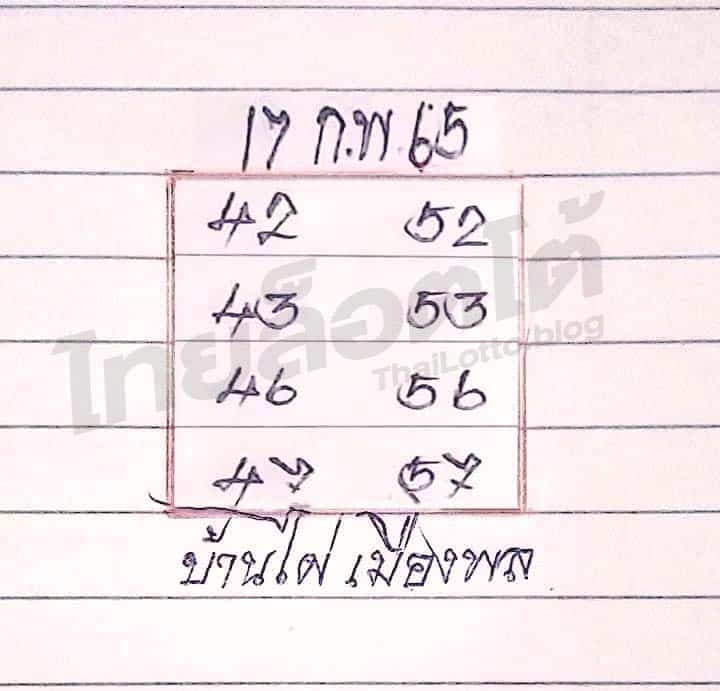 17 ก.พ.65
42 52
43 53
ไทยล็อตโต้
ThaiLotto/blog
46 56
47 57
บ้านไผ่ เมืองพล